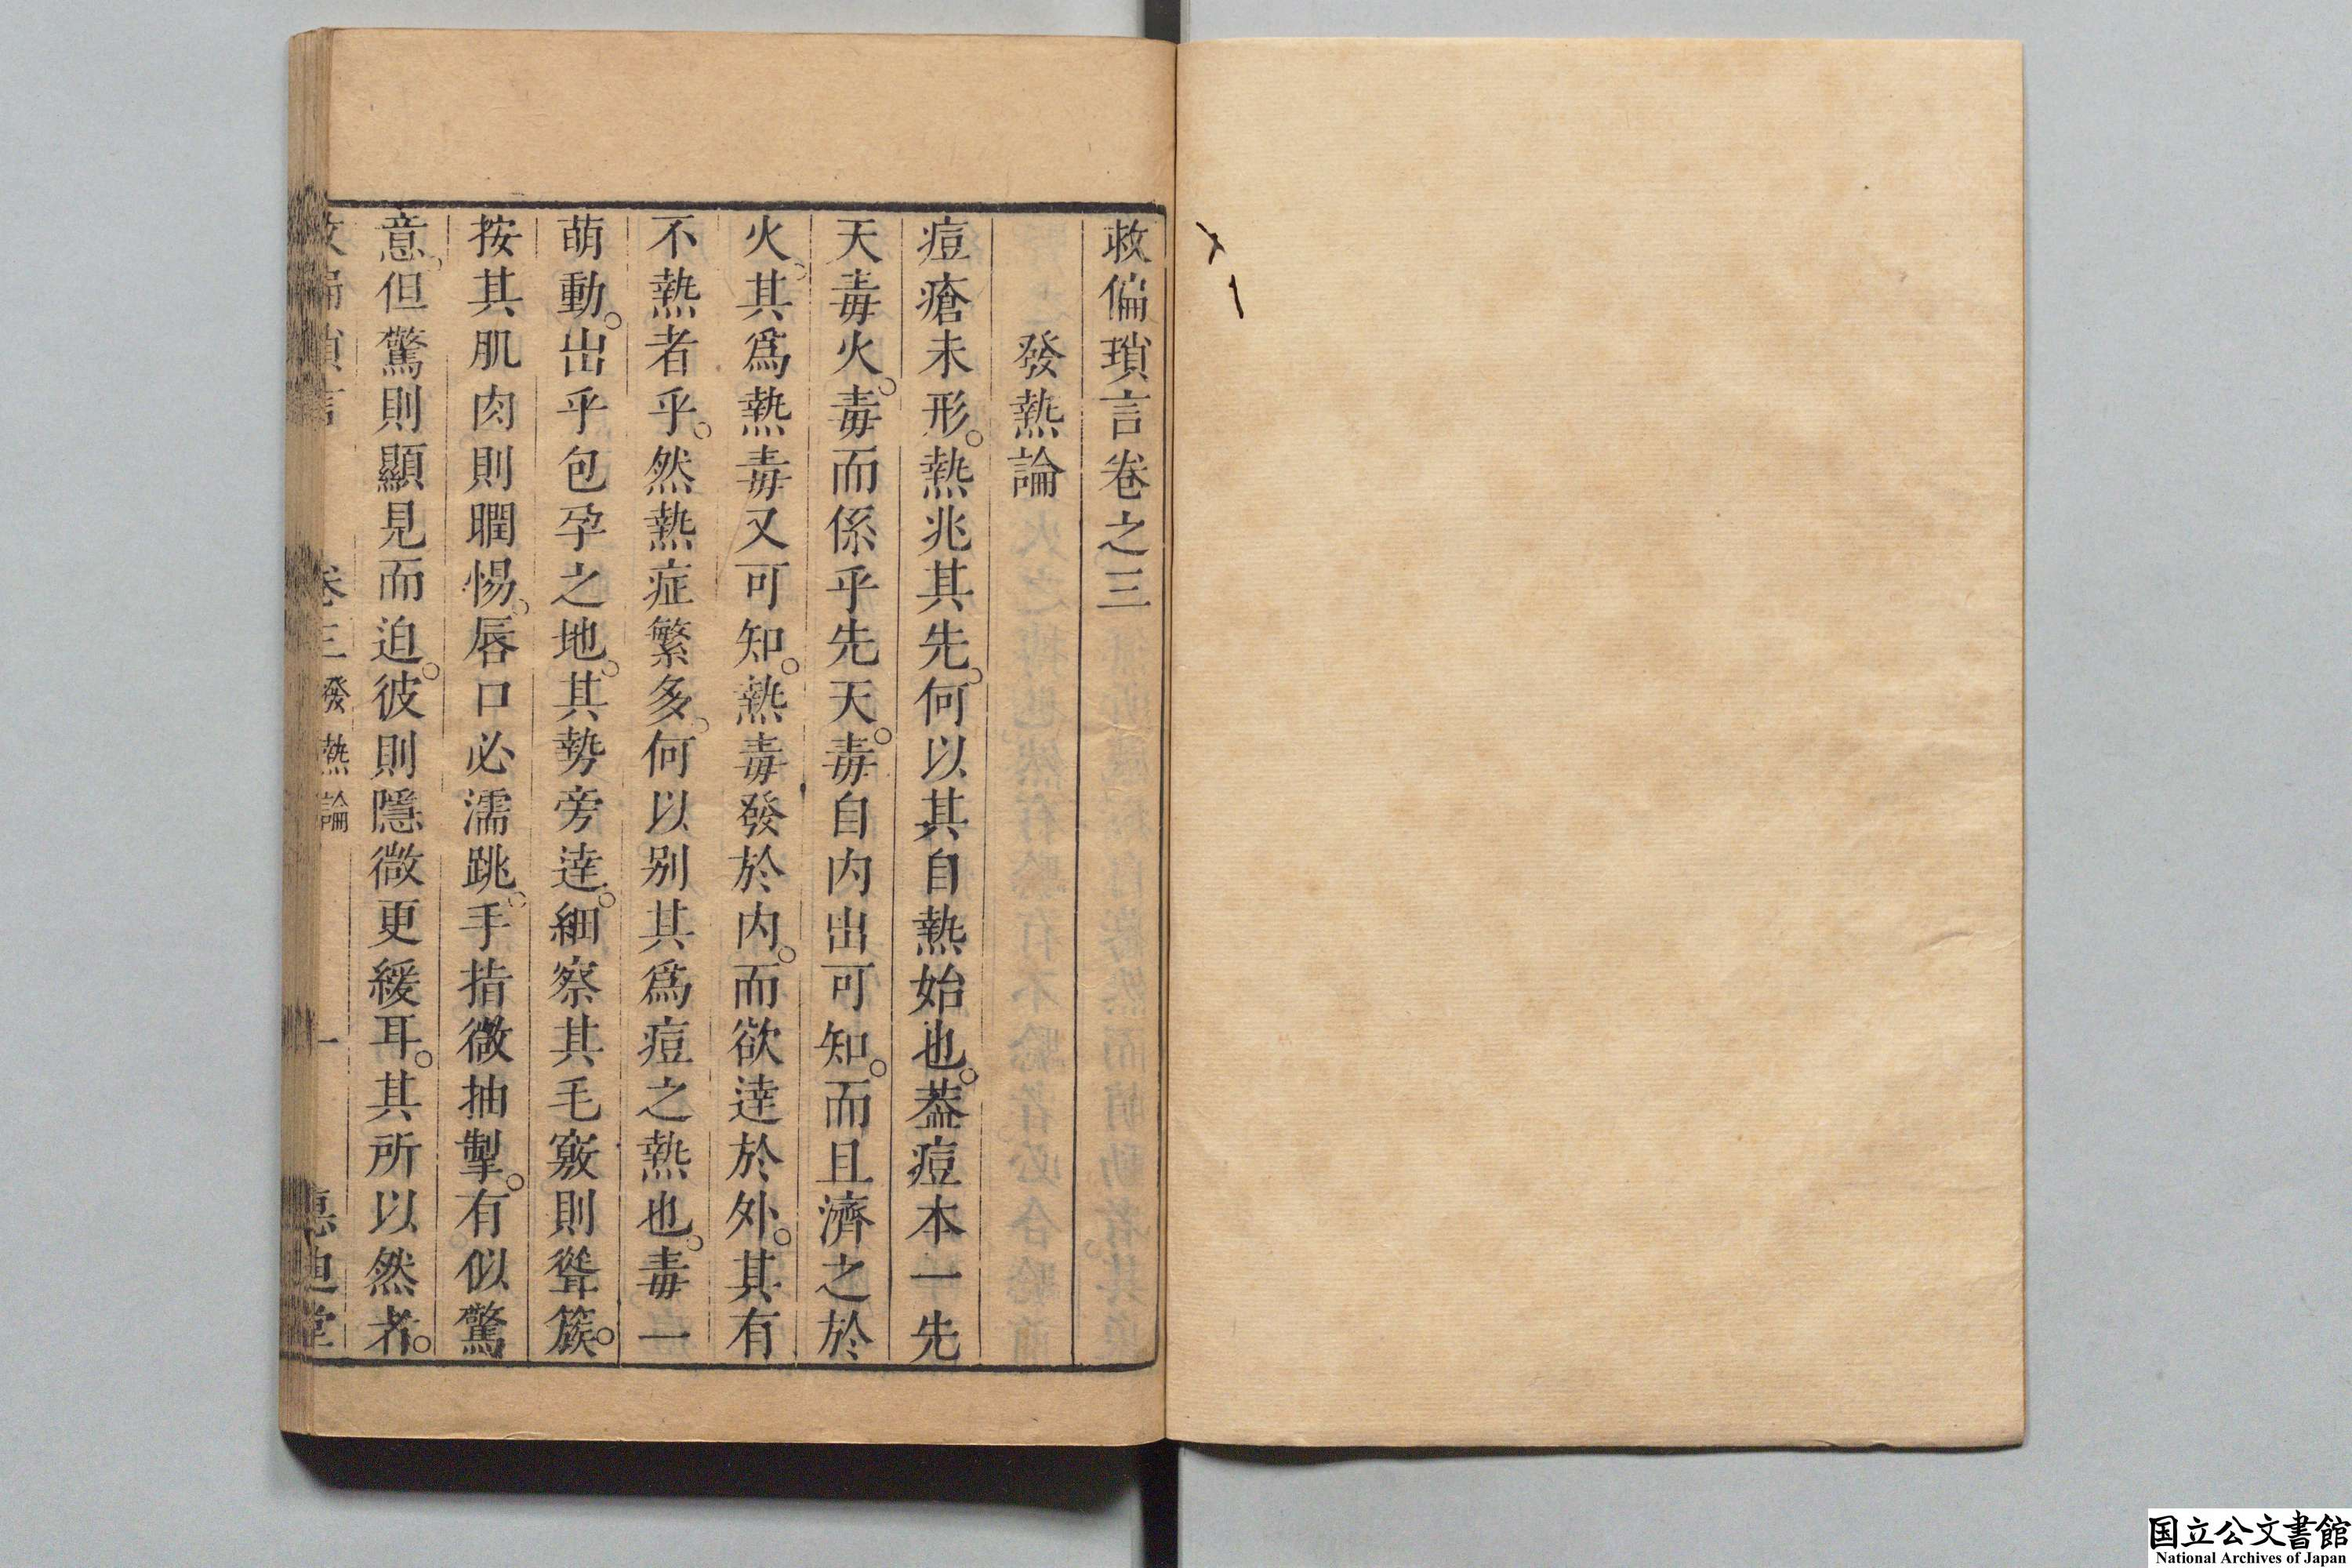 救偏瑣言卷之三
發熱論
痘瘡未形。熱兆其先。何以其自熱始也。葢痘本一先
天毒火。毒而係乎先天。毒自内出可知。而且濟之於
火。其爲熱毒又可知。熱毒發於内。而欲達於外。其有
不熱者乎。然熱症繁多。何以别其爲痘之熱也。毒一
萌動。出乎包孕之地。其勢旁達。細察其毛竅則聳簇。
按其肌肉則瞤惕。唇口必濡跳。手指微抽掣。有似驚
意。但驚則顯見而迫。彼則隱微更緩耳。其所以然者。
卷三 發熱論 一
国立公文書館
National Archives of Japan